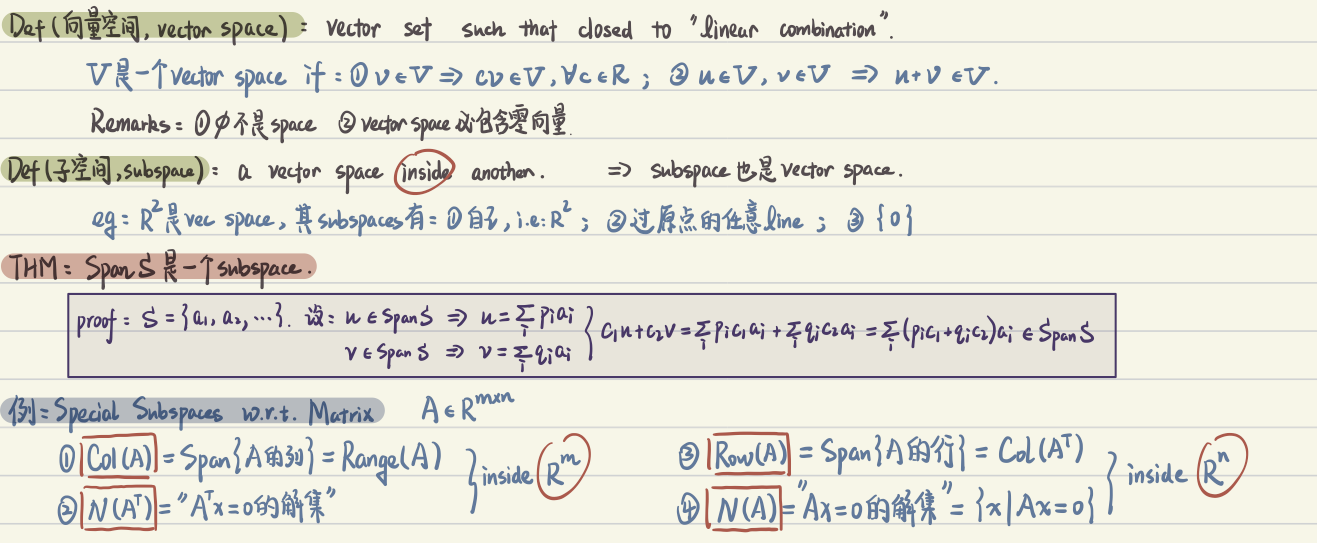 Def (向量空间, vector space) : vector set such that closed to "linear combination".
V是一个vector space if : ① v∈V ⇒ cv∈V, ∀c∈R ; ② u∈V, v∈V ⇒ u+v∈V.
Remarks: ① ∅不是space ② vector space 必包含零向量.
Def (子空间, subspace) : a vector space inside another. ⇒ subspace 也是 vector space.
eg: R²是vec space, 其subspaces有: ① 自己, i.e: R² ; ② 过原点的任意line ; ③ {0}
THM: Span S 是一个subspace.
proof: S = {a₁, a₂, ⋯}. 设: u ∈ Span S ⇒ u = ∑ᵢ pᵢaᵢ
v ∈ Span S ⇒ v = ∑ᵢ qᵢaᵢ } c₁u+c₂v = ∑ᵢ pᵢc₁aᵢ + ∑ᵢ qᵢc₂aᵢ = ∑ᵢ (pᵢc₁+qᵢc₂)aᵢ ∈ Span S
例: Special Subspaces w.r.t. Matrix A∈R^{m×n}
① Col(A) = Span{A的列} = Range(A)
② N(Aᵀ) = "Aᵀx=0的解集"
} inside Rᵐ
③ Row(A) = Span{A的行} = Col(Aᵀ)
④ N(A) = "Ax=0的解集" = {x | Ax=0}
} inside Rⁿ